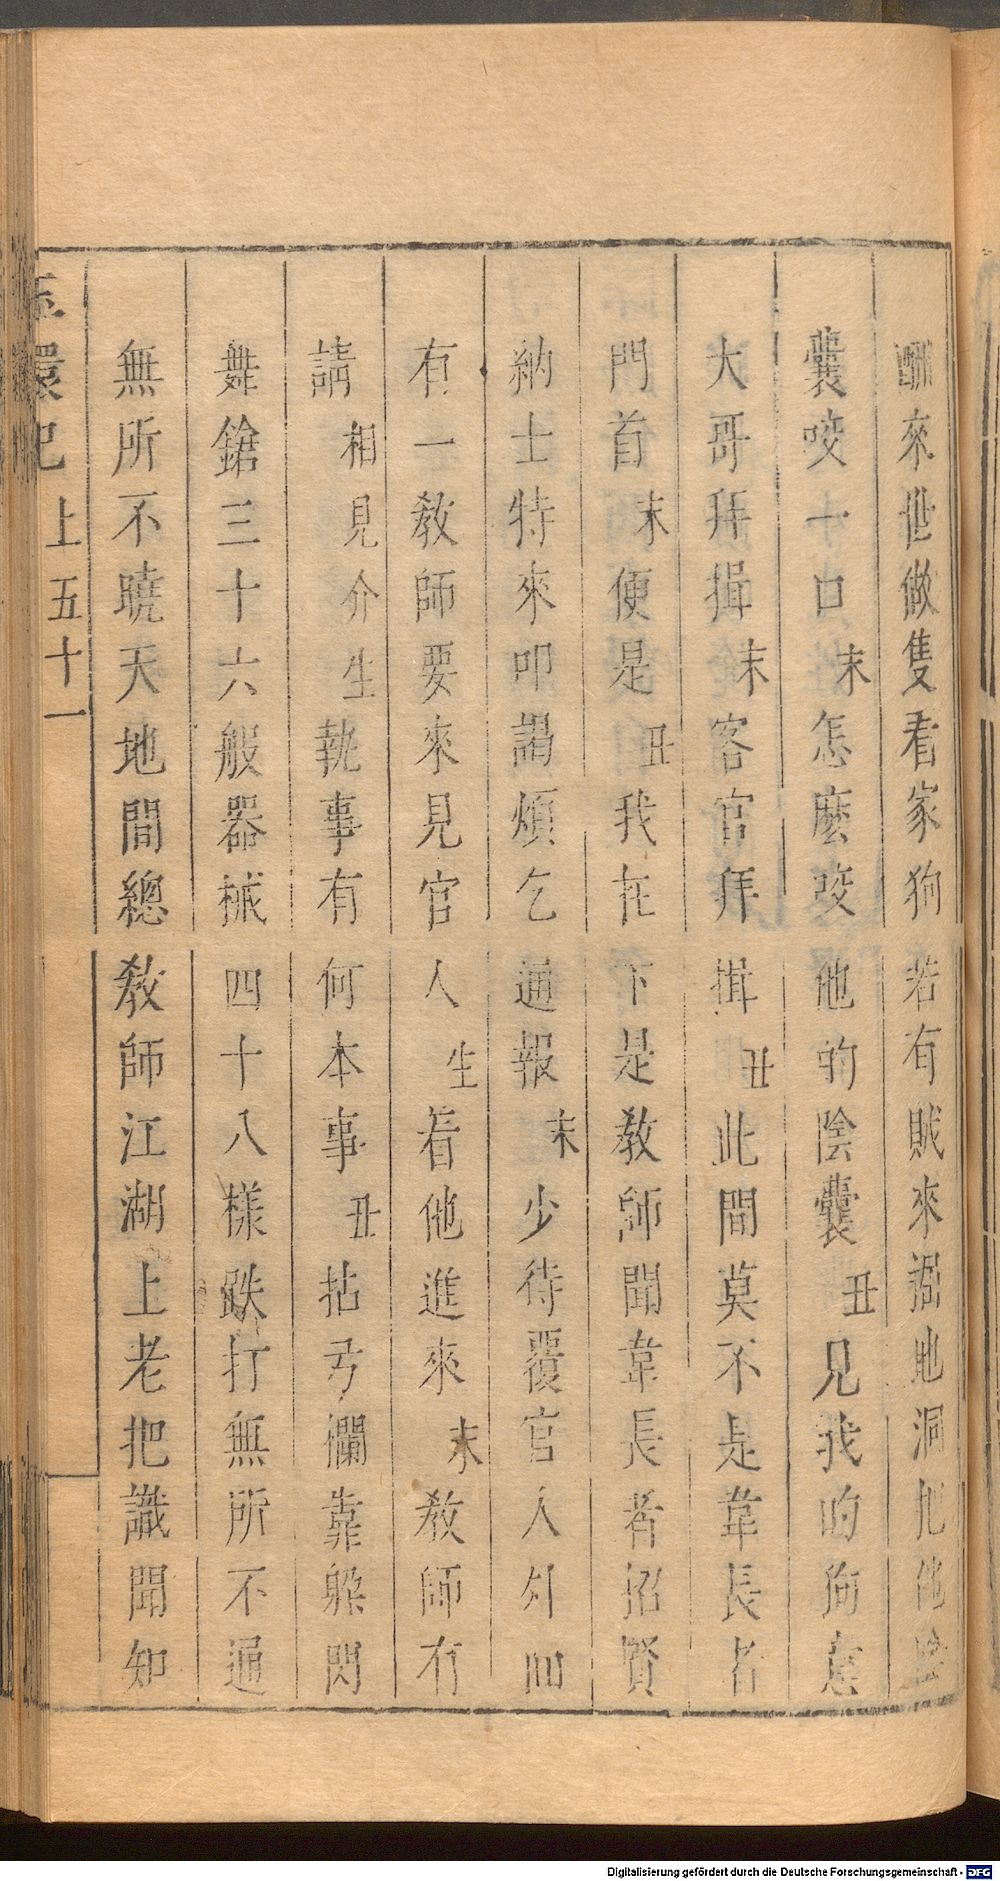 酬來世做隻看家狗若有賊來掘地洞把他陰
囊咬一口末怎麼咬他的陰囊丑見我的狗意
大哥拜揖末客官拜揖丑此間莫不是韋長者
門首末便是丑我在下是教師聞韋長者招賢
納士特來叩謁煩乞通報末少待覆官人外面
有一教師要來見官人生着他進來末教師有
請相見介生執事有何本事丑拈弓欄靠躲閃
舞鎗三十六般器械四十八樣跌打無所不通
無所不曉天地間總教師江湖上老把識聞知
玉環記 上 五十一
Digitalisierung gefördert durch die Deutsche Forschungsgemeinschaft - DFG